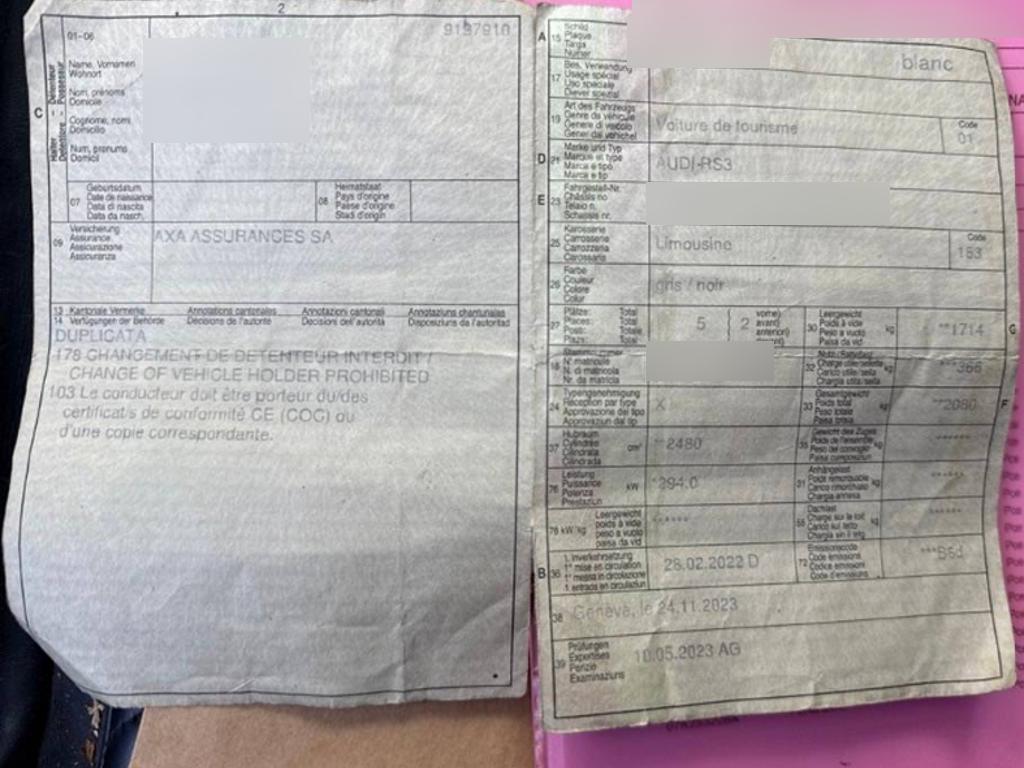 2
01-06
9137910
Name, Vornamen
Wohnort
Nom, prénoms
Domicile
Cognome, nomi
Domicilio
Num, prenums
Domicil
Halter - Détenteur
Detentore - Possessur
C
07
Geburtsdatum
Date de naissance
Data di nascita
Data da nasch.
08
Heimatstaat
Pays d'origine
Paese d'origine
Stadi d'origin
09
Versicherung
Assurance
Assicurazione
Assicuranza
AXA ASSURANCES SA
13 Kantonale Vermerke Annotations cantonales Annotazioni cantonali Annotaziuns chantunalas
14 Verfügungen der Behörde Décisions de l'autorité Decisioni dell'autorità Disposiziuns da l'autoritad
DUPLICATA
178 CHANGEMENT DE DETENTEUR INTERDIT /
CHANGE OF VEHICLE HOLDER PROHIBITED
103 Le conducteur doit être porteur du/des
certificats de conformité CE (COC) ou
d'une copie correspondante.
A 15
Schild
Plaque
Targa
Numer
blanc
17
Bes. Verwendung
Usage spécial
Uso speciale
Diever spezial
19
Art des Fahrzeugs
Genre de véhicule
Genere di veicolo
Gener dal vehichel
Voiture de tourisme
Code
01
D 21
Marke und Typ
Marque et type
Marca e tipo
Marca e tip
AUDI-RS3
E 23
Fahrgestell-Nr.
Châssis no
Telaio n.
Schassis nr.
25
Karosserie
Carrosserie
Carrozzeria
Carossaria
Limousine
Code
153
26
Farbe
Couleur
Colore
Colur
gris / noir
27
Plätze: Total
Places: Total
Posti: Totale
Plazs: Total
5
2
vorne)
avant)
anteriori)
30
Leergewicht
Poids à vide
Peso a vuoto
Paisa da vid
kg
**1714
G
18
N° matricule
N. di matricola
Nr. da matricla
32
Charge utile/sellette
Carico utile/sella
Chargia utila/sella
kg
***366
24
Typengenehmigung
Réception par type
Approvazione del tipo
Approvaziun dal tip
X
33
Gesamtgewicht
Poids total
Peso totale
Paisa totala
kg
**2080
F
37
Hubraum
Cylindrée
Cilindrata
Cilindrada
cm³
**2480
35
Gewicht des Zuges
Poids de l'ensemble
Peso del convoglio
Paisa cumposiziun
kg
******
76
Leistung
Puissance
Potenza
Prestaziun
kW
*294.0
31
Anhängelast
Poids remorquable
Carico rimorchiato
Chargia annexa
kg
******
78 kW/kg
Leergewicht
poids à vide
peso a vuoto
paisa da vid
******
55
Dachlast
Charge sur le toit
Carico sul tetto
Chargia sin il tetg
kg
******
B 36
1. Inverkehrsetzung
1re mise en circulation
1a messa in circolazione
1. entrada en circulaziun
28.02.2022 D
72
Emissionscode
Code émissions
Codice emissioni
Code d'emissiuns
***B6d
38
Genève, le 24.11.2023
39
Prüfungen
Expertises
Perizie
Examinaziuns
10.05.2023 AG